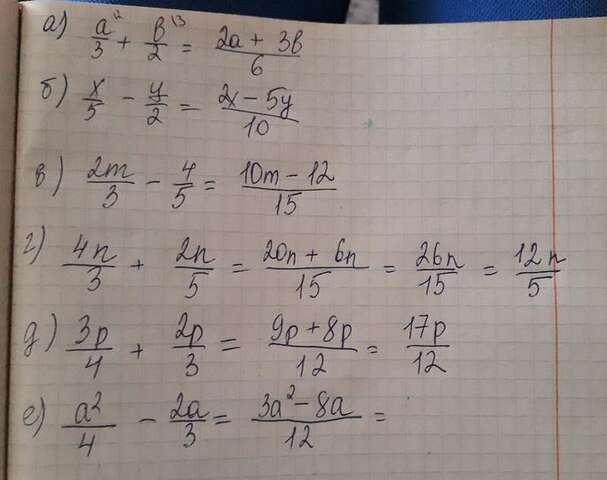 а) a/3 + b/2 = (2a + 3b)/6
б) x/5 - y/2 = (2x - 5y)/10
в) 2m/3 - 4/5 = (10m - 12)/15
г) 4n/3 + 2n/5 = (20n + 6n)/15 = 26n/15 = 12n/5
д) 3p/4 + 2p/3 = (9p + 8p)/12 = 17p/12
е) a²/4 - 2a/3 = (3a² - 8a)/12 =